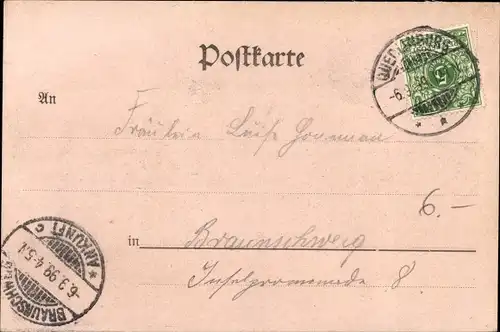 Postkarte
QUEDLINBURG
-6.3
5
An
Fräulein Luise Honeman
6.-
in Braunschweig
Inselpromenade 8.
BRAUNSCHWEIG
-6.3.99.4-5.
* ANKUNFT C